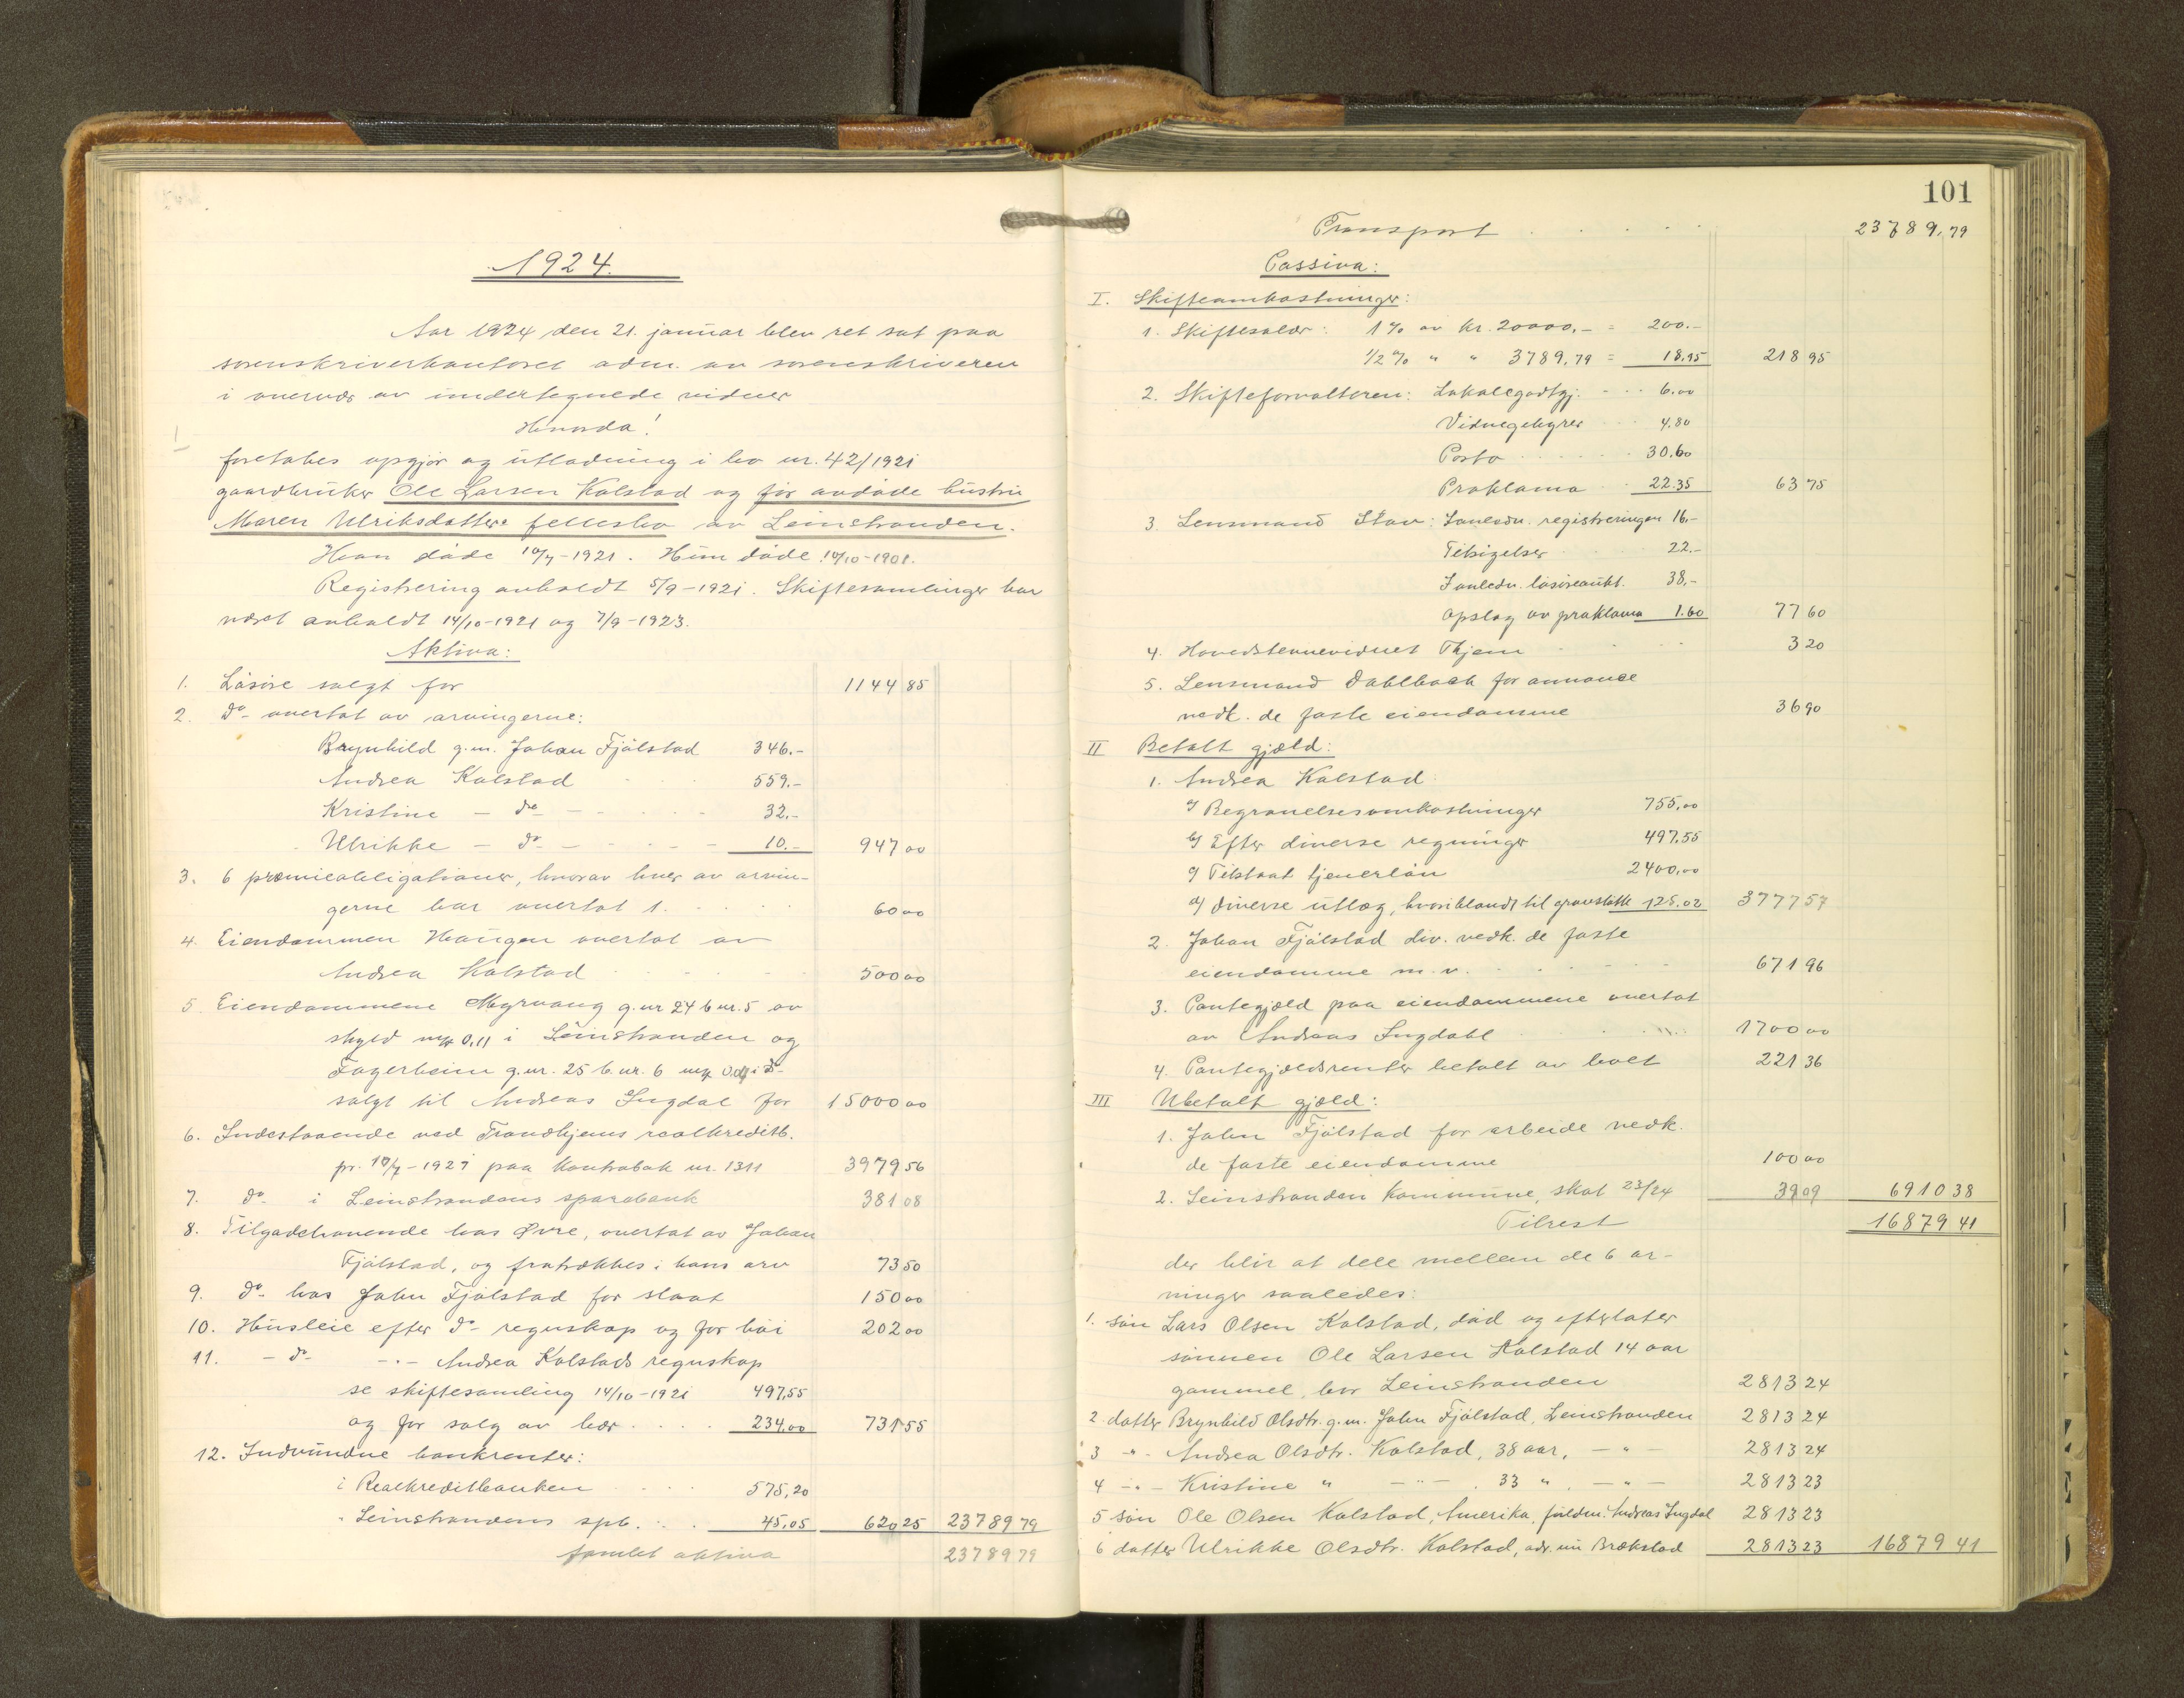 1924.
Aar 1924 den 21. januar blev ret sat paa
sorenskriverkontoret adm. av sorenskriveren
i overvær av undertegnede vidner
Hvorda!
foretokes opgjør og utlodning i bo nr. 42/1921
gaardbruker Ole Larsen Kolstad og før avdøde hustru
Maren Ulriksdatters fellesbo av Leinstranden.
Han døde 10/7-1921. Hun døde 14/10-1901.
Registrering avholdt 5/9-1921. Skiftesamlinger har
været avholdt 14/10-1921 og 7/9-1923.
Aktiva:
1. Løsøre solgt for 1144 85
2. do- overtat av arvingerne:
Brynhild g.m. Johan Fjølstad 346.-
Andrea Kolstad 559.-
Kristine - do - 32.-
Ulrikke - do - 10.- 947 00
3. 6 præmieobligationer, hvorav hver av arvin-
gerne har overtat 1. 60 00
4. Eiendommen Haugen overtat av
Andrea Kolstad 500 00
5. Eiendommene Myrvang g.nr 24 b.nr. 5 av
skyld mrk 0,11 i Leinstranden og
Fagerheim g.nr. 25 b.nr. 6 mrk i do-
solgt til Andreas Lugdal for 15000 00
6. Indestaaende ved Trondhjems realkreditb.
pr. 10/7-1921 paa Kontrabok nr. 1311 3979 56
7. do- i Leinstrandens sparebank 381 08
8. Tilgodehavende hos Øvre, overtat av Johan
Fjølstad, og fratrækkes i hans arv 73 50
9. do- hos John Fjølstad for slaat 150 00
10. Husleie efter do- regnskap og for høi 202 00
11. - do- -"- Andrea Kolstads regnskap
se skiftesamling 14/10-1921 497,55
og for salg av bær 234,00 731 55
12. Indvundne bankrenter:
i Realkreditbanken 575,20
" Leinstrandens spb. 45,05 620 25 23789 79
Samlet aktiva 23789 79
101
Transport 23789,79
Passiva:
I. Skifteomkostninger:
1. Skiftesalær: 1% av kr. 20000,- = 200.-
1/2% " " 3789,79 = 18,95 218 95
2. Skifteforvalteren: Lokalegodtgj. 6.00
Vidnegebyrer 4,80
Porto 30.60
Proklama 22.35 63 75
3. Lensmand Stav: I anledn. registreringen 16.-
Tilsigelser 22.-
I anledn. løsøreaukt. 38,-
Opslag av proklama 1.60 77 60
4. Hovedstevnevidnet Thjem 3 20
5. Lensmand Dahlback for annonce
vedk. de faste eiendomme 36 90
II Betalt gjæld:
1. Andrea Kolstad
a) Begravelsesomkostninger 755,00
b) Efter diverse regninger 497,55
c) Tilstaat tjenerløn 2400,00
d) Diverse utlæg, hvoriblandt til gravstøtte 125.02 3777 57
2. Johan Fjølstad div. vedk. de faste
eiendomme m.v. 671 96
3. Pantegjæld paa eiendommene overtat
av Andreas Lugdahl 1700 00
4. Pantegjældsrenter betalt av boet 221 36
III Ubetalt gjæld:
1. John Fjølstad for arbeide vedk.
de faste eiendomme 100 00
2. Leinstranden Kommune, skat 23/24 39 09 6910 38
Tilrest 16879 41
der blir at dele mellem de 6 ar-
vinger saaledes:
1. søn Lars Olsen Kolstad, død og efterlater
sønnen Ole Larsen Kolstad 14 aar
gammel, bor Leinstranden 2813 24
2. datter Brynhild Olsdtr. g.m. John Fjølstad, Leinstranden 2813 24
3 -"- Andrea Olsdtr. Kolstad, 38 aar, - " - 2813 24
4 -"- Kristine " -"- 33 " - " - 2813 23
5 søn Ole Olsen Kolstad, Amerika, fuldm. Andreas Lugdal 2813 23
6 datter Ulrikke Olsdtr. Kolstad, adr. nu Brækstad 2813 23 16879 41